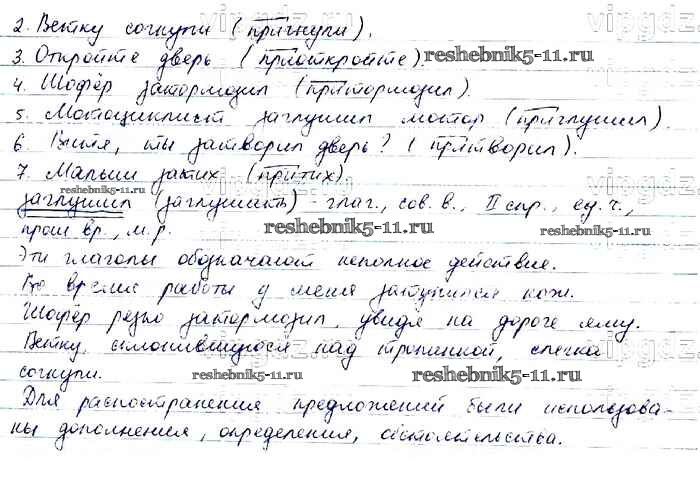 2. Ветку согнули (пригнули).
3. Откройте дверь (приоткройте).
4. Шофёр затормозил (притормозил).
5. Мотоциклист заглушил мотор (приглушил).
6. Витя, ты затворил дверь? (притворил).
7. Малыш затих (притих).
заглушил (заглушить) - глаг., сов. в., II спр., ед. ч.,
прош. вр., м. р.
Эти глаголы обозначают неполное действие.
Во время работы у меня затупился нож.
Шофёр резко затормозил, увидя на дороге яму.
Ветку, склонившуюся над тропинкой, слегка
согнули.
Для распостранения предложений были использова-
ны дополнения, определения, обстоятельства.
vipgdz.ru
reshebnik5-11.ru
reshebnik5-11.ru
reshebnik5-11.ru
reshebnik5-11.ru
reshebnik5-11.ru
reshebnik5-11.ru